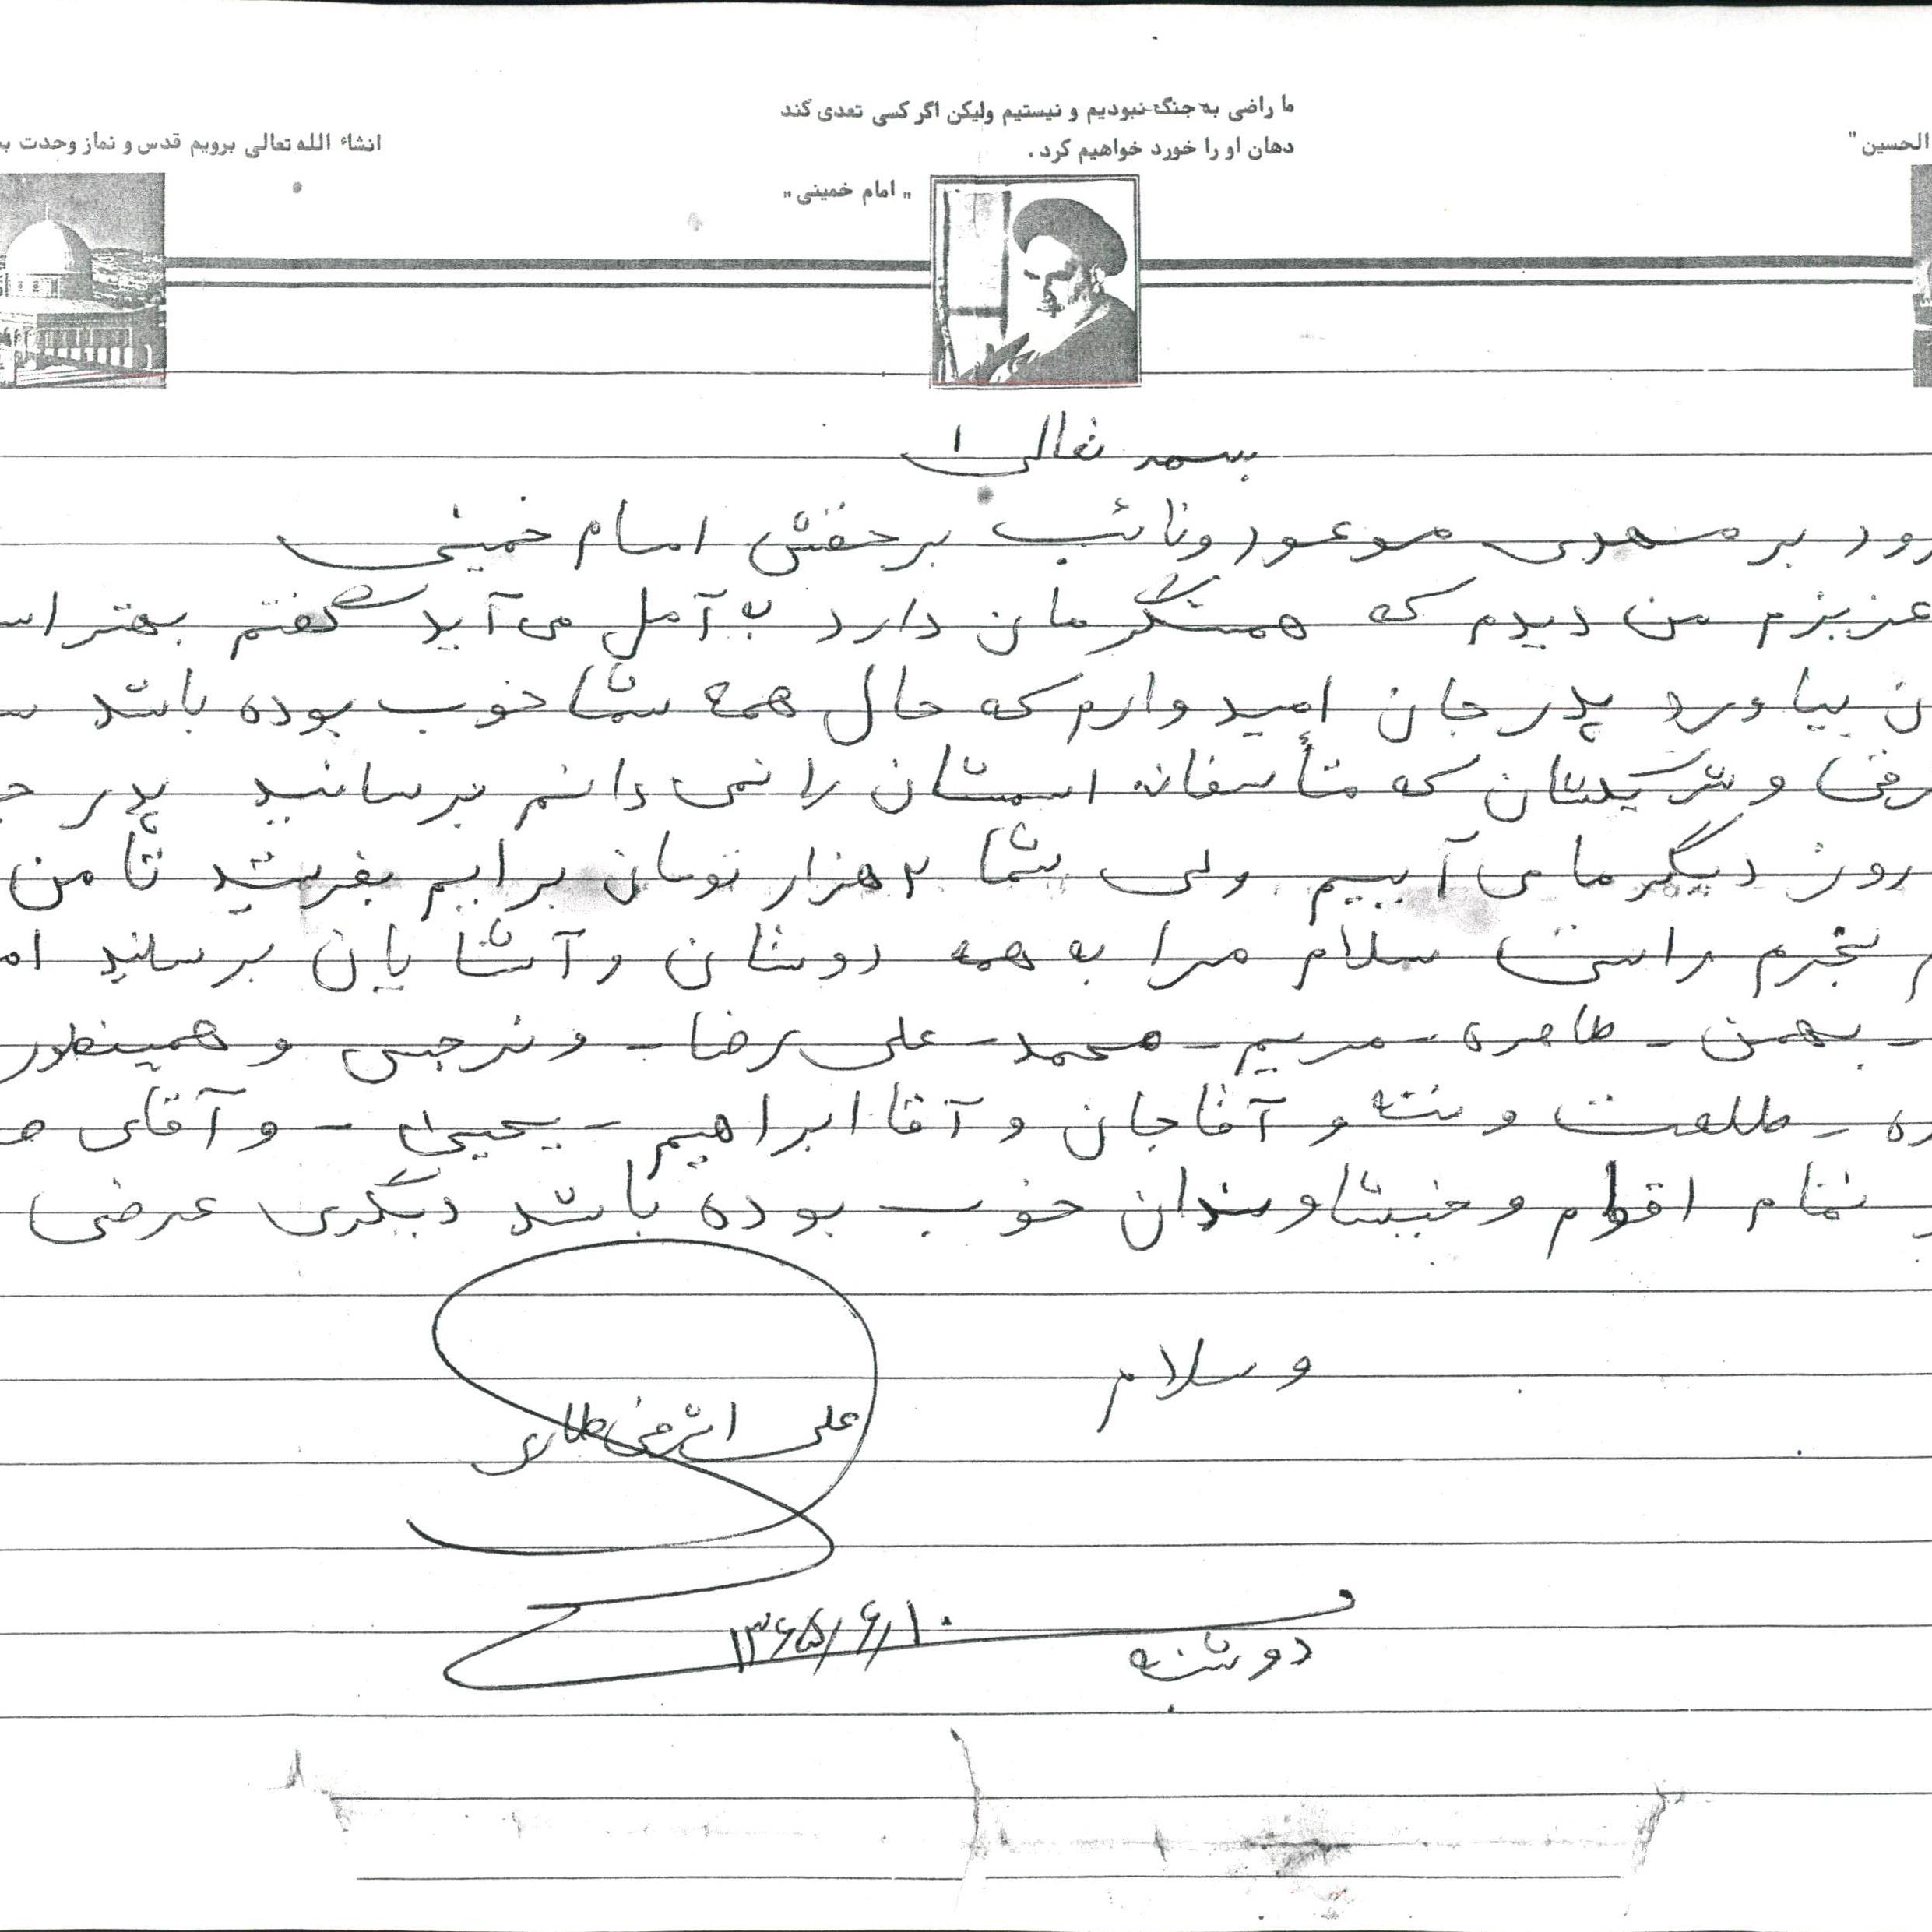 ما راضی به جنگ نبودیم و نیستیم ولیکن اگر کسی تعدی کند
دهان او را خورد خواهیم کرد .
"امام خمینی"
الحسین"
انشاء الله تعالی برویم قدس و نماز وحدت
بسمه تعالی
بر مهدی موعود و نائب برحقش امام خمینی
عزیزم من دیدم که همسنگرمان دارد به آمل می آید گفتم بهتر
بیاورد پدر جان امیدوارم که حال همه شما خوب بوده باشد
و شریکتان که متأسفانه اسمشان را نمی دانم برسانید پدر
روز دیگر ما می آییم ولی شما ۲ هزار تومان برایم بفرستید تا من
بخرم راستی سلام مرا به همه دوستان و آشنایان برسانید
- بهمن - طاهره - مریم - محمد - علی رضا - و نرجس و همینطور
- طلعت و ننه و آقاجان و آقا ابراهیم - یحیی - و آقای
تمام اقوام و خیشاوندان خوب بوده باشد دیگری عرضی
وسلام
علی اشرفی طاری
دوشنبه ۱۳۶۵/۶/۱۰